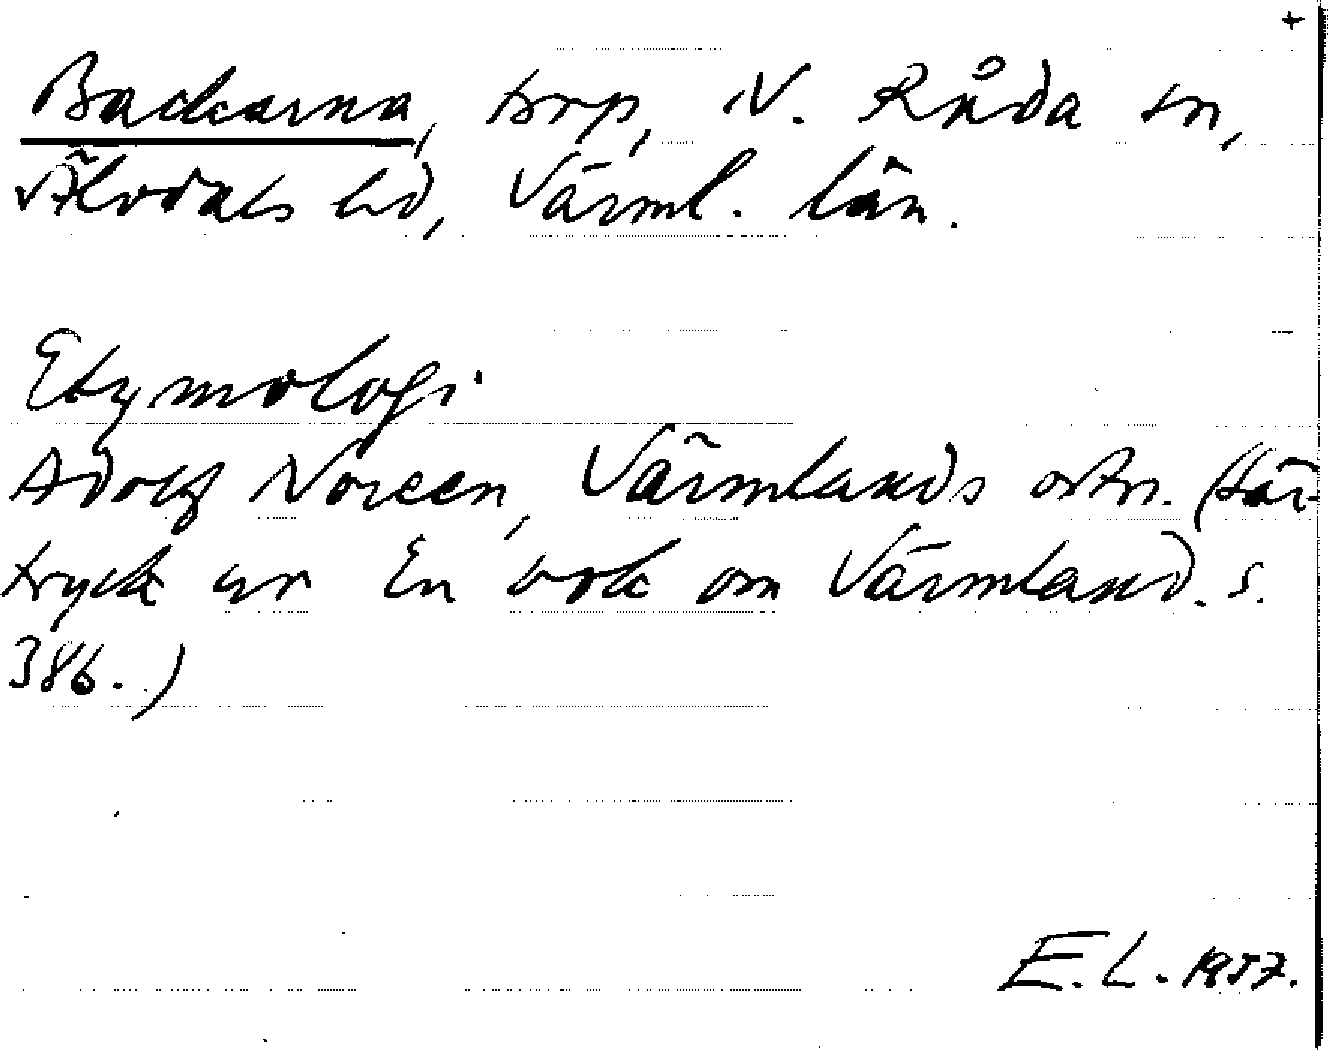 +
Backarna, torp, N. Råda sn,
Älvdals hd, Värml. län.
Etymologi
Adolf Noreen, Värmlands ortn. (Sär-
tryck ur En bok om Värmland. s.
386.)
E. L. 1957.